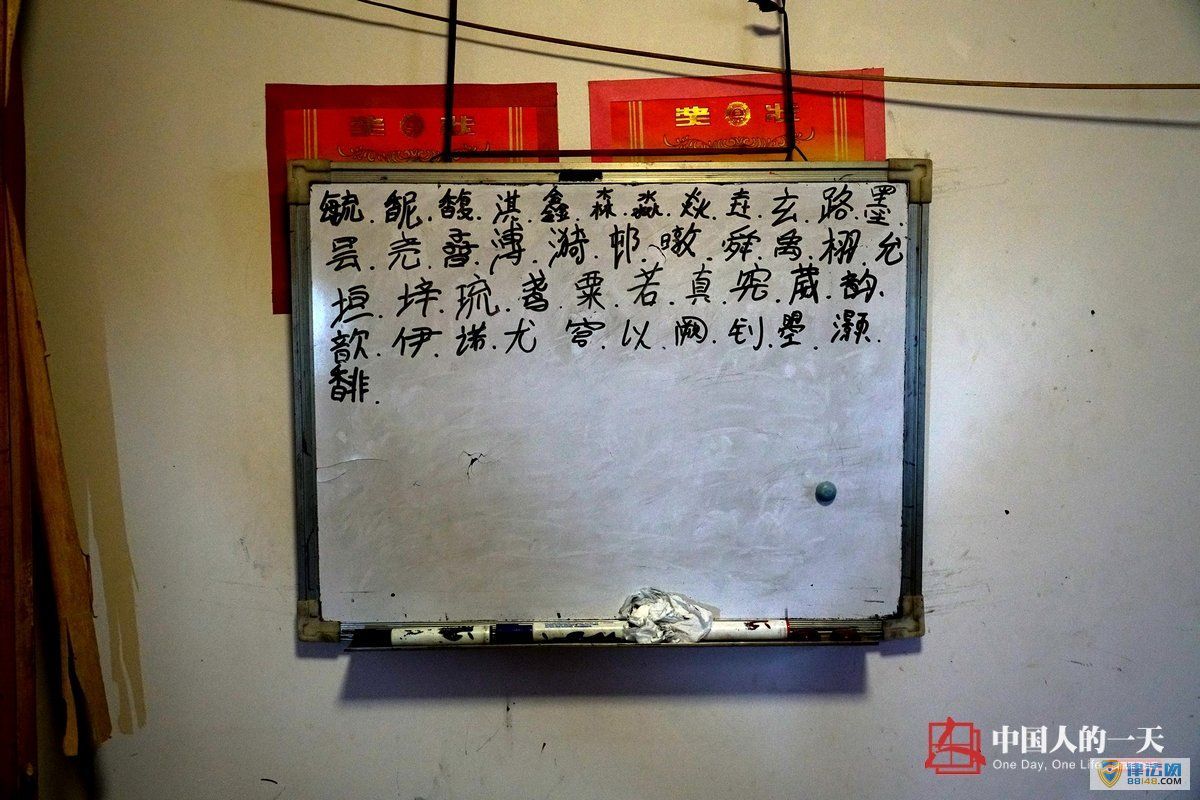 奖 状
奖 状
毓.馜.馥.淇.鑫.森.淼.焱.垚.玄.路.墨.
昙.尧.溥.漪.邨.暾.舜.禹.栩.允
垣.梓.琉.耆.粟.若.真.宪.葳.韵.
歆.伊.诺.尤.穹.以.阙.钊.曌.灏.
馡.
中国人的一天
One Day, One Life
律法网
88148.COM